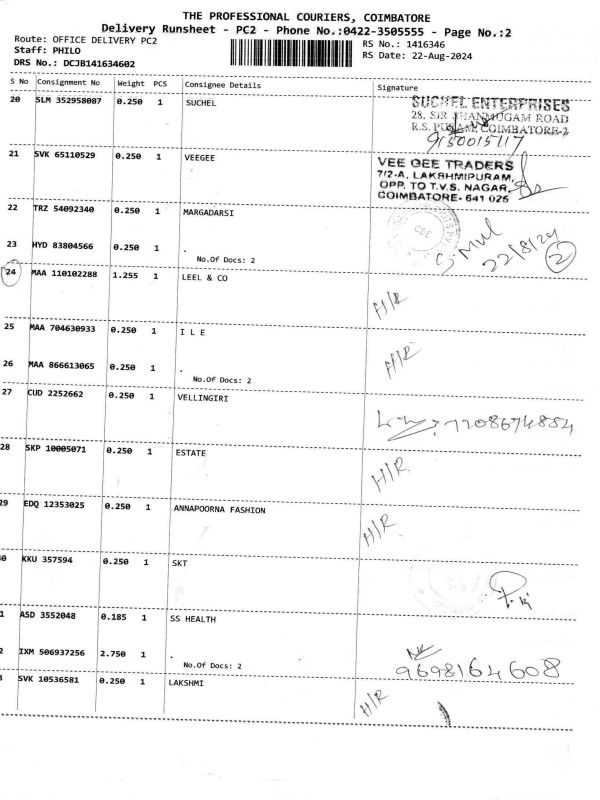 THE PROFESSIONAL COURIERS, COIMBATORE
Delivery Runsheet - PC2 - Phone No.:0422-3505555 - Page No.:2
Route: OFFICE DELIVERY PC2
RS No.: 1416346
Staff: PHILO
RS Date: 22-Aug-2024
DRS No.: DCJB141634602
S No Consignment No Weight PCS Consignee Details Signature
20 SLM 352958087 0.250 1 SUCHEL
SUCHEL ENTERPRISES
28, SIR SHANMUGAM ROAD
R.S. PURAM, COIMBATORE-2
9150015117
21 SVK 65110529 0.250 1 VEEGEE
VEE GEE TRADERS
7/2-A, LAKSHMIPURAM,
OPP. TO T.V.S. NAGAR,
COIMBATORE- 641 025
22 TRZ 54092340 0.250 1 MARGADARSI
CBE
22/8/24
2
23 HYD 83804566 0.250 1 .
No.Of Docs: 2
24 MAA 110102288 1.255 1 LEEL & CO
H/R
25 MAA 704630933 0.250 1 I L E
H/R
26 MAA 866613065 0.250 1 .
No.Of Docs: 2
27 CUD 2252662 0.250 1 VELLINGIRI
7708674854
28 SKP 10005071 0.250 1 ESTATE
H/R
29 EDQ 12353025 0.250 1 ANNAPOORNA FASHION
H/R
0 KKU 357594 0.250 1 SKT
1 ASD 3552048 0.185 1 SS HEALTH
2 IXM 506937256 2.750 1 .
No.Of Docs: 2
9698164608
3 SVK 10536581 0.250 1 LAKSHMI
H/R